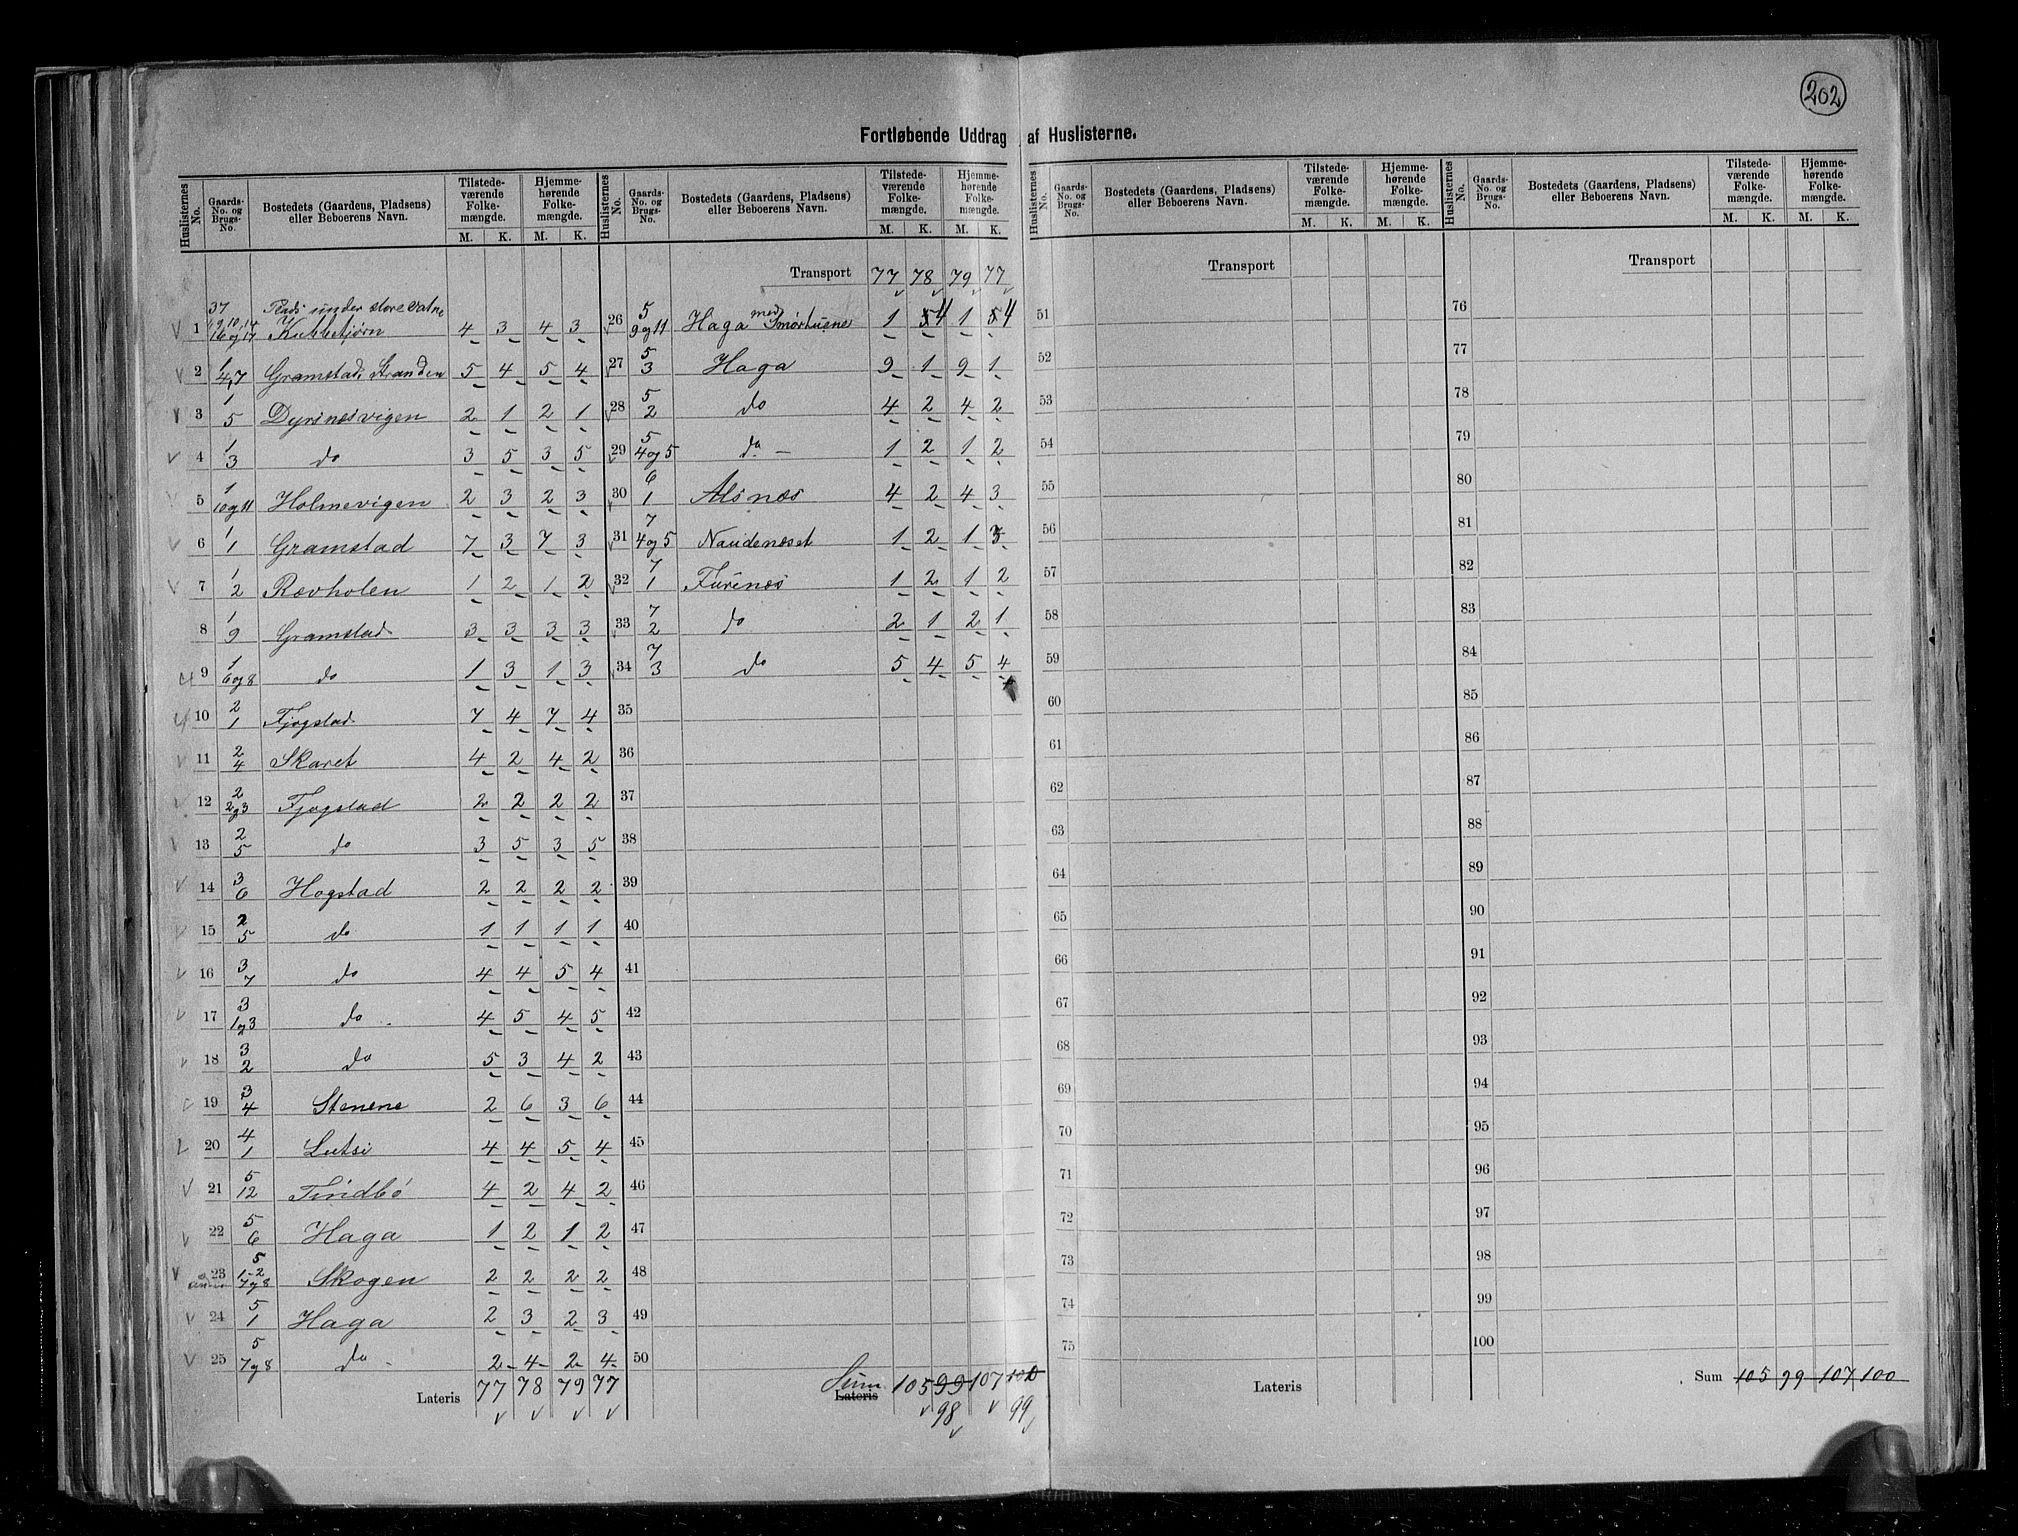 202
Fortløbende Uddrag af Huslisterne.
Huslisternes No. Gaards-No. og Brugs-No. Bostedets (Gaardens, Pladsens) eller Beboerens Navn. Tilstedeværende Folkemængde. M. K. Hjemmehørende Folkemængde. M. K.
37 Plads under store vatne
1 9, 10, 14 16 og 17 Kukketjørn 4 3 4 3
2 1 4,7 Gramstad, Stranden 5 4 5 4
3 1 5 Dyrsnesvigen 2 1 2 1
4 1 3 do 3 5 3 5
5 1 10 og 11 Holmevigen 2 3 2 3
6 1 1 Gramstad 7 3 7 3
7 1 2 Revholen 1 2 1 2
8 1 9 Gramstad 3 3 3 3
9 1 6 og 8 do 1 3 1 3
10 2 1 Fjogstad 7 4 7 4
11 2 4 Skaret 4 2 4 2
12 2 2 og 3 Fjogstad 2 2 2 2
13 2 5 do 3 5 3 5
14 3 6 Hogstad 2 2 2 2
15 2 5 do 1 1 1 1
16 3 7 do 4 4 5 4
17 3 1 og 3 do 4 5 4 5
18 3 2 do 5 3 4 2
19 3 4 Stenene 2 6 3 6
20 4 1 Lutsi 4 4 5 4
21 5 12 Tindbø 4 2 4 2
22 5 6 Haga 1 2 1 2
23 5 1-2 7 og 8 Skogen 2 2 2 2
24 5 1 Haga 2 3 2 3
25 5 7 og 8 do 2 4 2 4
Lateris 77 78 79 77
Huslisternes No. Gaards-No. og Brugs-No. Bostedets (Gaardens, Pladsens) eller Beboerens Navn. Tilstedeværende Folkemængde. M. K. Hjemmehørende Folkemængde. M. K.
Transport 77 78 79 77
26 5 9 og 11 Haga med Smørtuene 1 5 4 1 5 4
27 5 3 Haga 9 1 9 1
28 5 2 do 4 2 4 2
29 5 4 og 5 do 1 2 1 2
30 6 1 Alsnæs 4 2 4 3
31 7 4 og 5 Naudenæset 1 2 1 3
32 7 1 Furenæs 1 2 1 2
33 7 2 do 2 1 2 1
34 7 3 do 5 4 5 4
35
36
37
38
39
40
41
42
43
44
45
46
47
48
49
50
Sum Lateris 105 99 107 100
98 99
Huslisternes No. Gaards-No. og Brugs-No. Bostedets (Gaardens, Pladsens) eller Beboerens Navn. Tilstedeværende Folkemængde. M. K. Hjemmehørende Folkemængde. M. K.
Transport
51
52
53
54
55
56
57
58
59
60
61
62
63
64
65
66
67
68
69
70
71
72
73
74
75
Lateris
Huslisternes No. Gaards-No. og Brugs-No. Bostedets (Gaardens, Pladsens) eller Beboerens Navn. Tilstedeværende Folkemængde. M. K. Hjemmehørende Folkemængde. M. K.
Transport
76
77
78
79
80
81
82
83
84
85
86
87
88
89
90
91
92
93
94
95
96
97
98
99
100
Sum 105 99 107 100